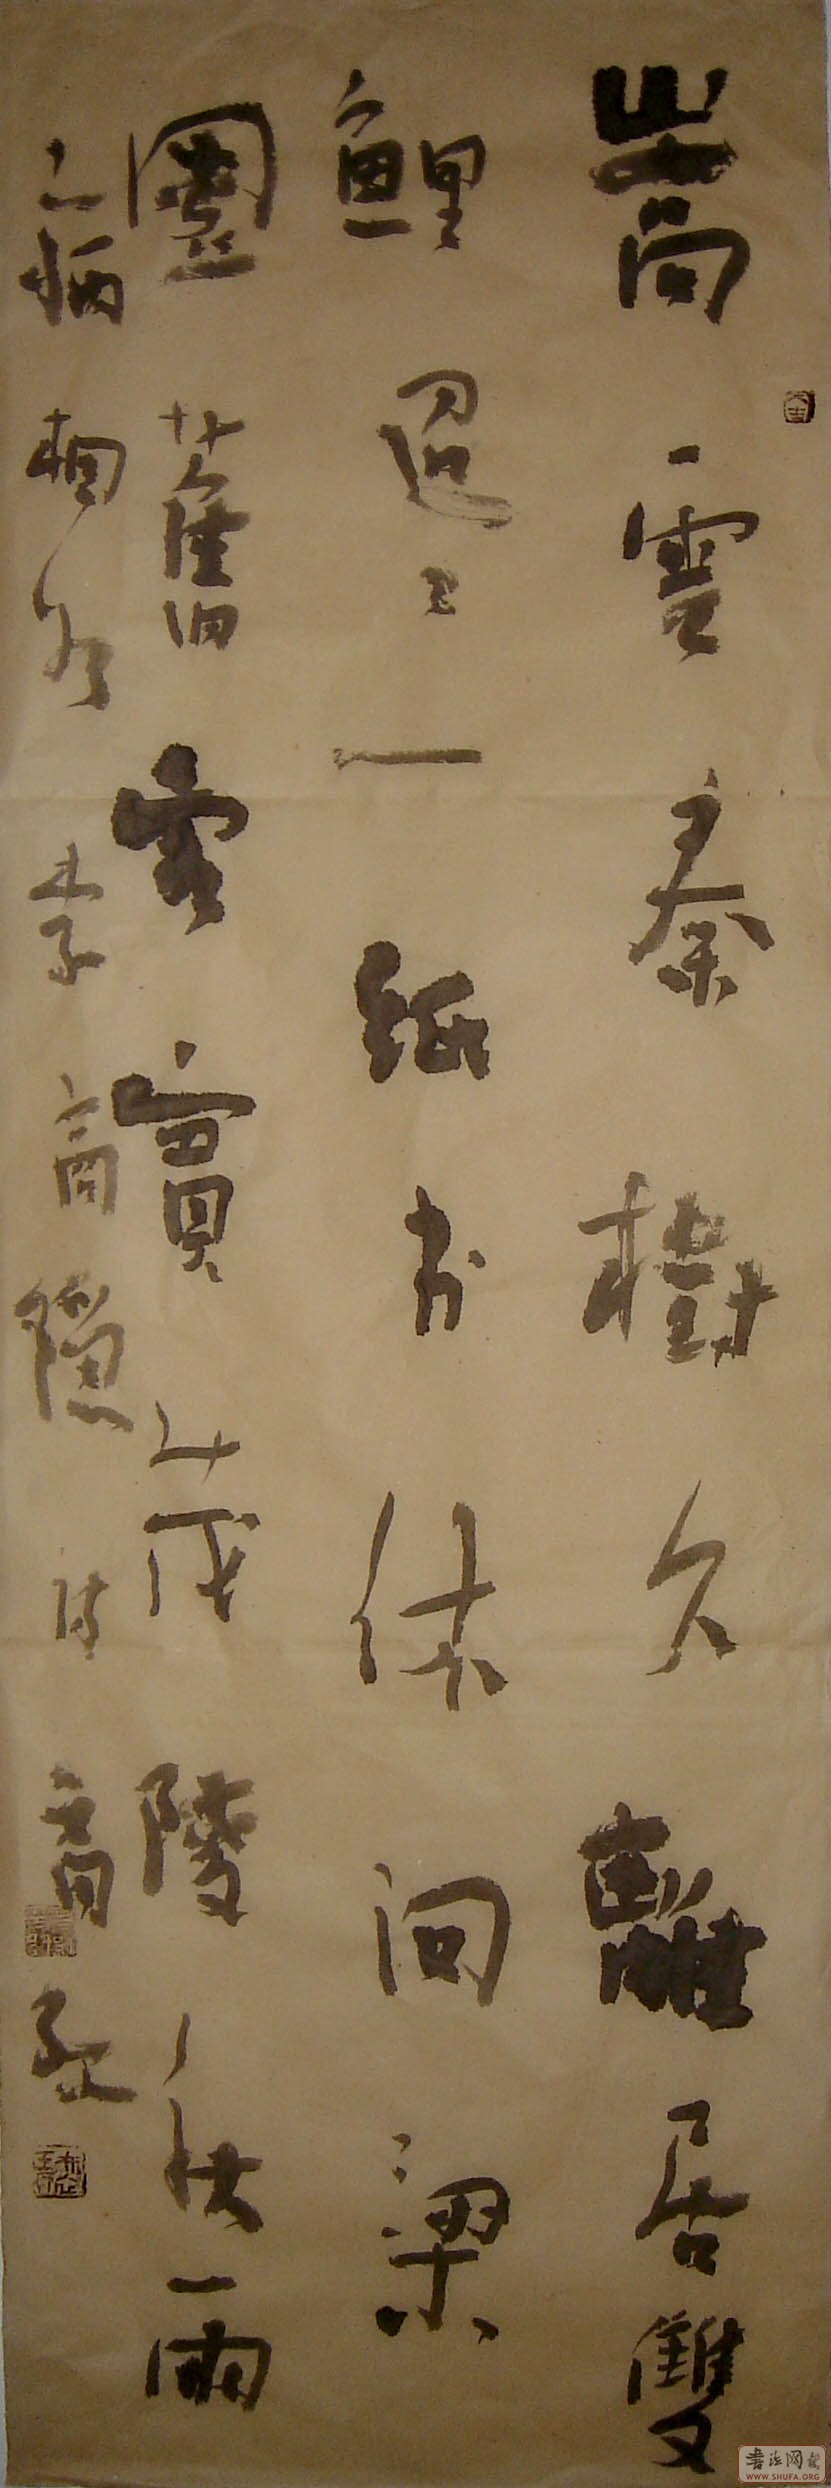 嵩雲秦樹久離居雙
鯉迢〻一紙书休问梁
園舊賓客茂陵秋雨
病相如李商隐诗
书法网
WWW.SHUFA.ORG